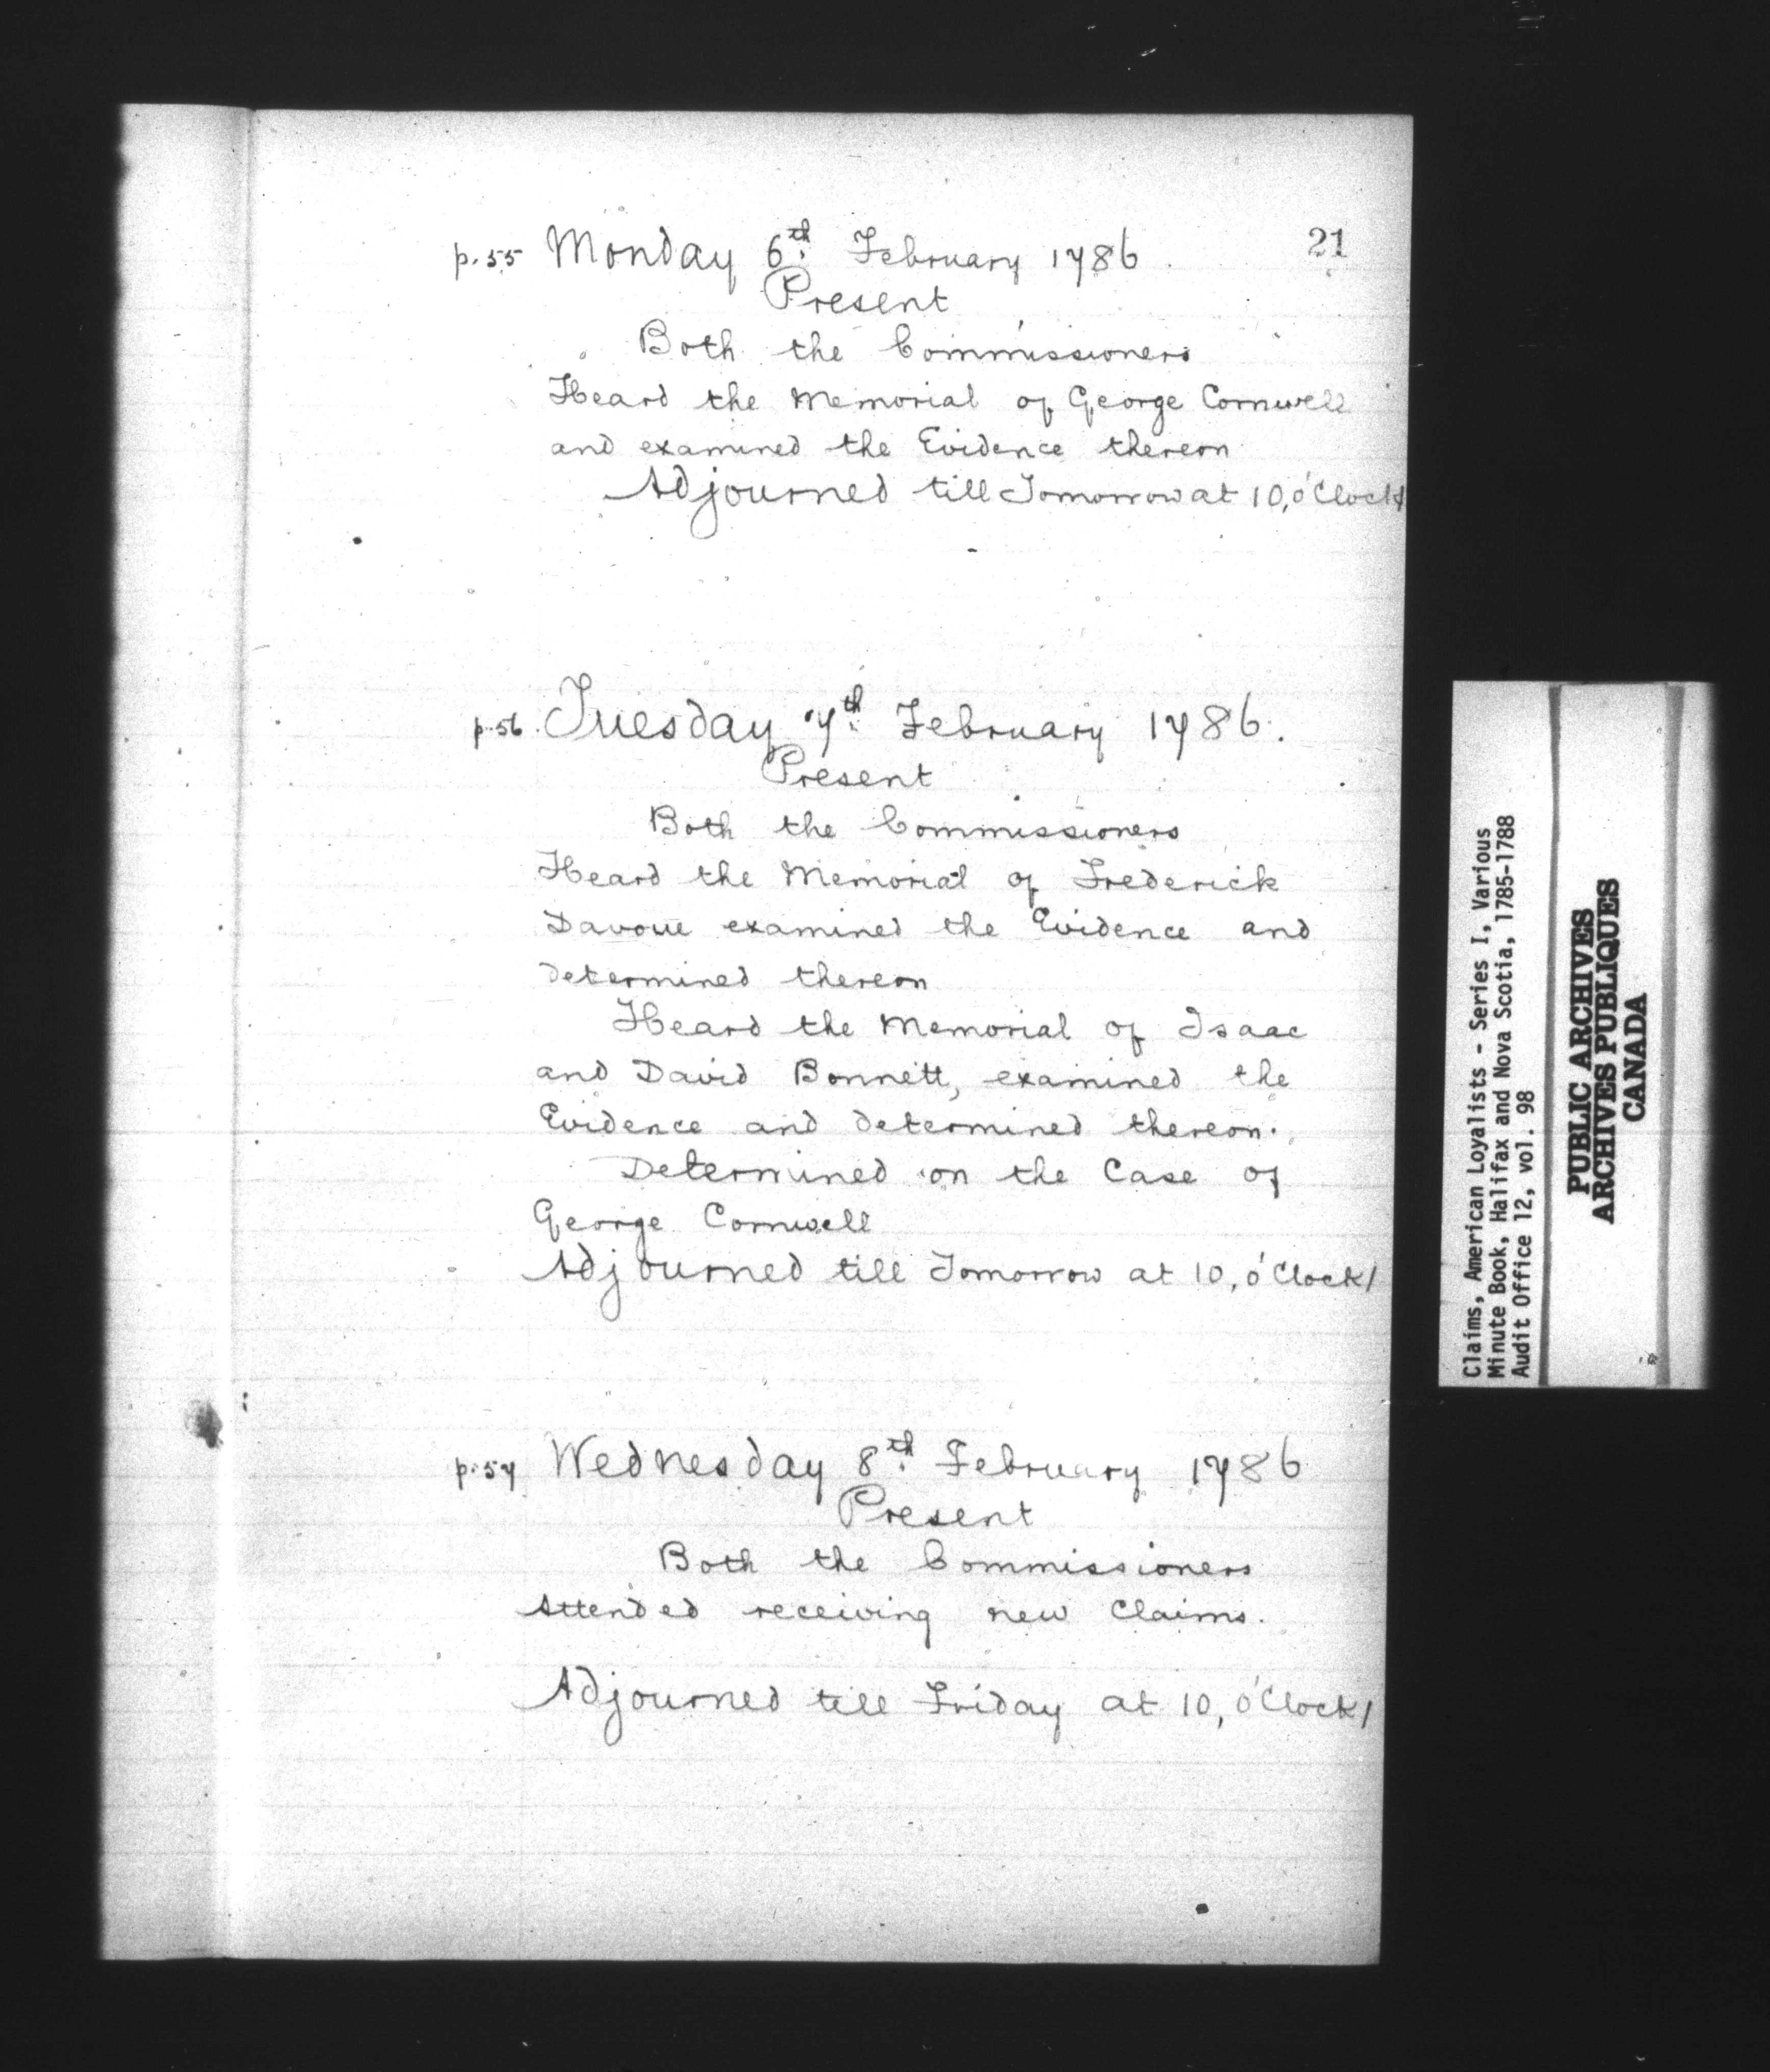 21
p.55 Monday 6th. February 1786.
Present
Both the Commissioners
Heard the Memorial of George Cornwell
and examined the Evidence thereon
Adjourned till Tomorrow at 10, o'Clock/
p.56. Tuesday 7th. February 1786.
Present
Both the Commissioners
Heard the Memorial of Frederick
Davoue examined the Evidence and
determined thereon
Heard the Memorial of Isaac
and David Bonnett, examined the
Evidence and determined thereon.
Determined on the Case of
George Cornwell
Adjourned till Tomorrow at 10, o'Clock/
p.57 Wednesday 8th. February 1786
Present
Both the Commissioners
Attended receiving new Claims.
Adjourned till Friday at 10, o'Clock/
Claims, American Loyalists - Series I, Various
Minute Book, Halifax and Nova Scotia, 1785-1788
Audit Office 12, vol. 98
PUBLIC ARCHIVES
ARCHIVES PUBLIQUES
CANADA